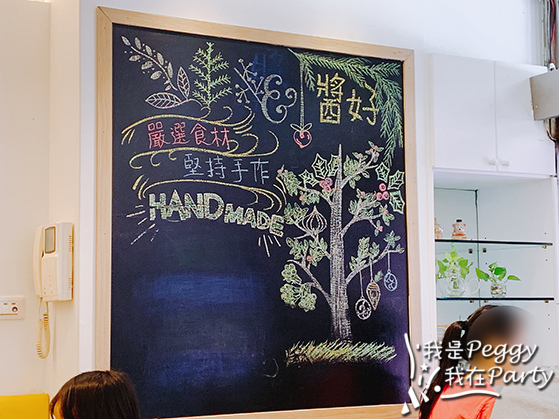 醬好
嚴選食材
堅持手作
HANDMADE
我是Peggy
我在Party